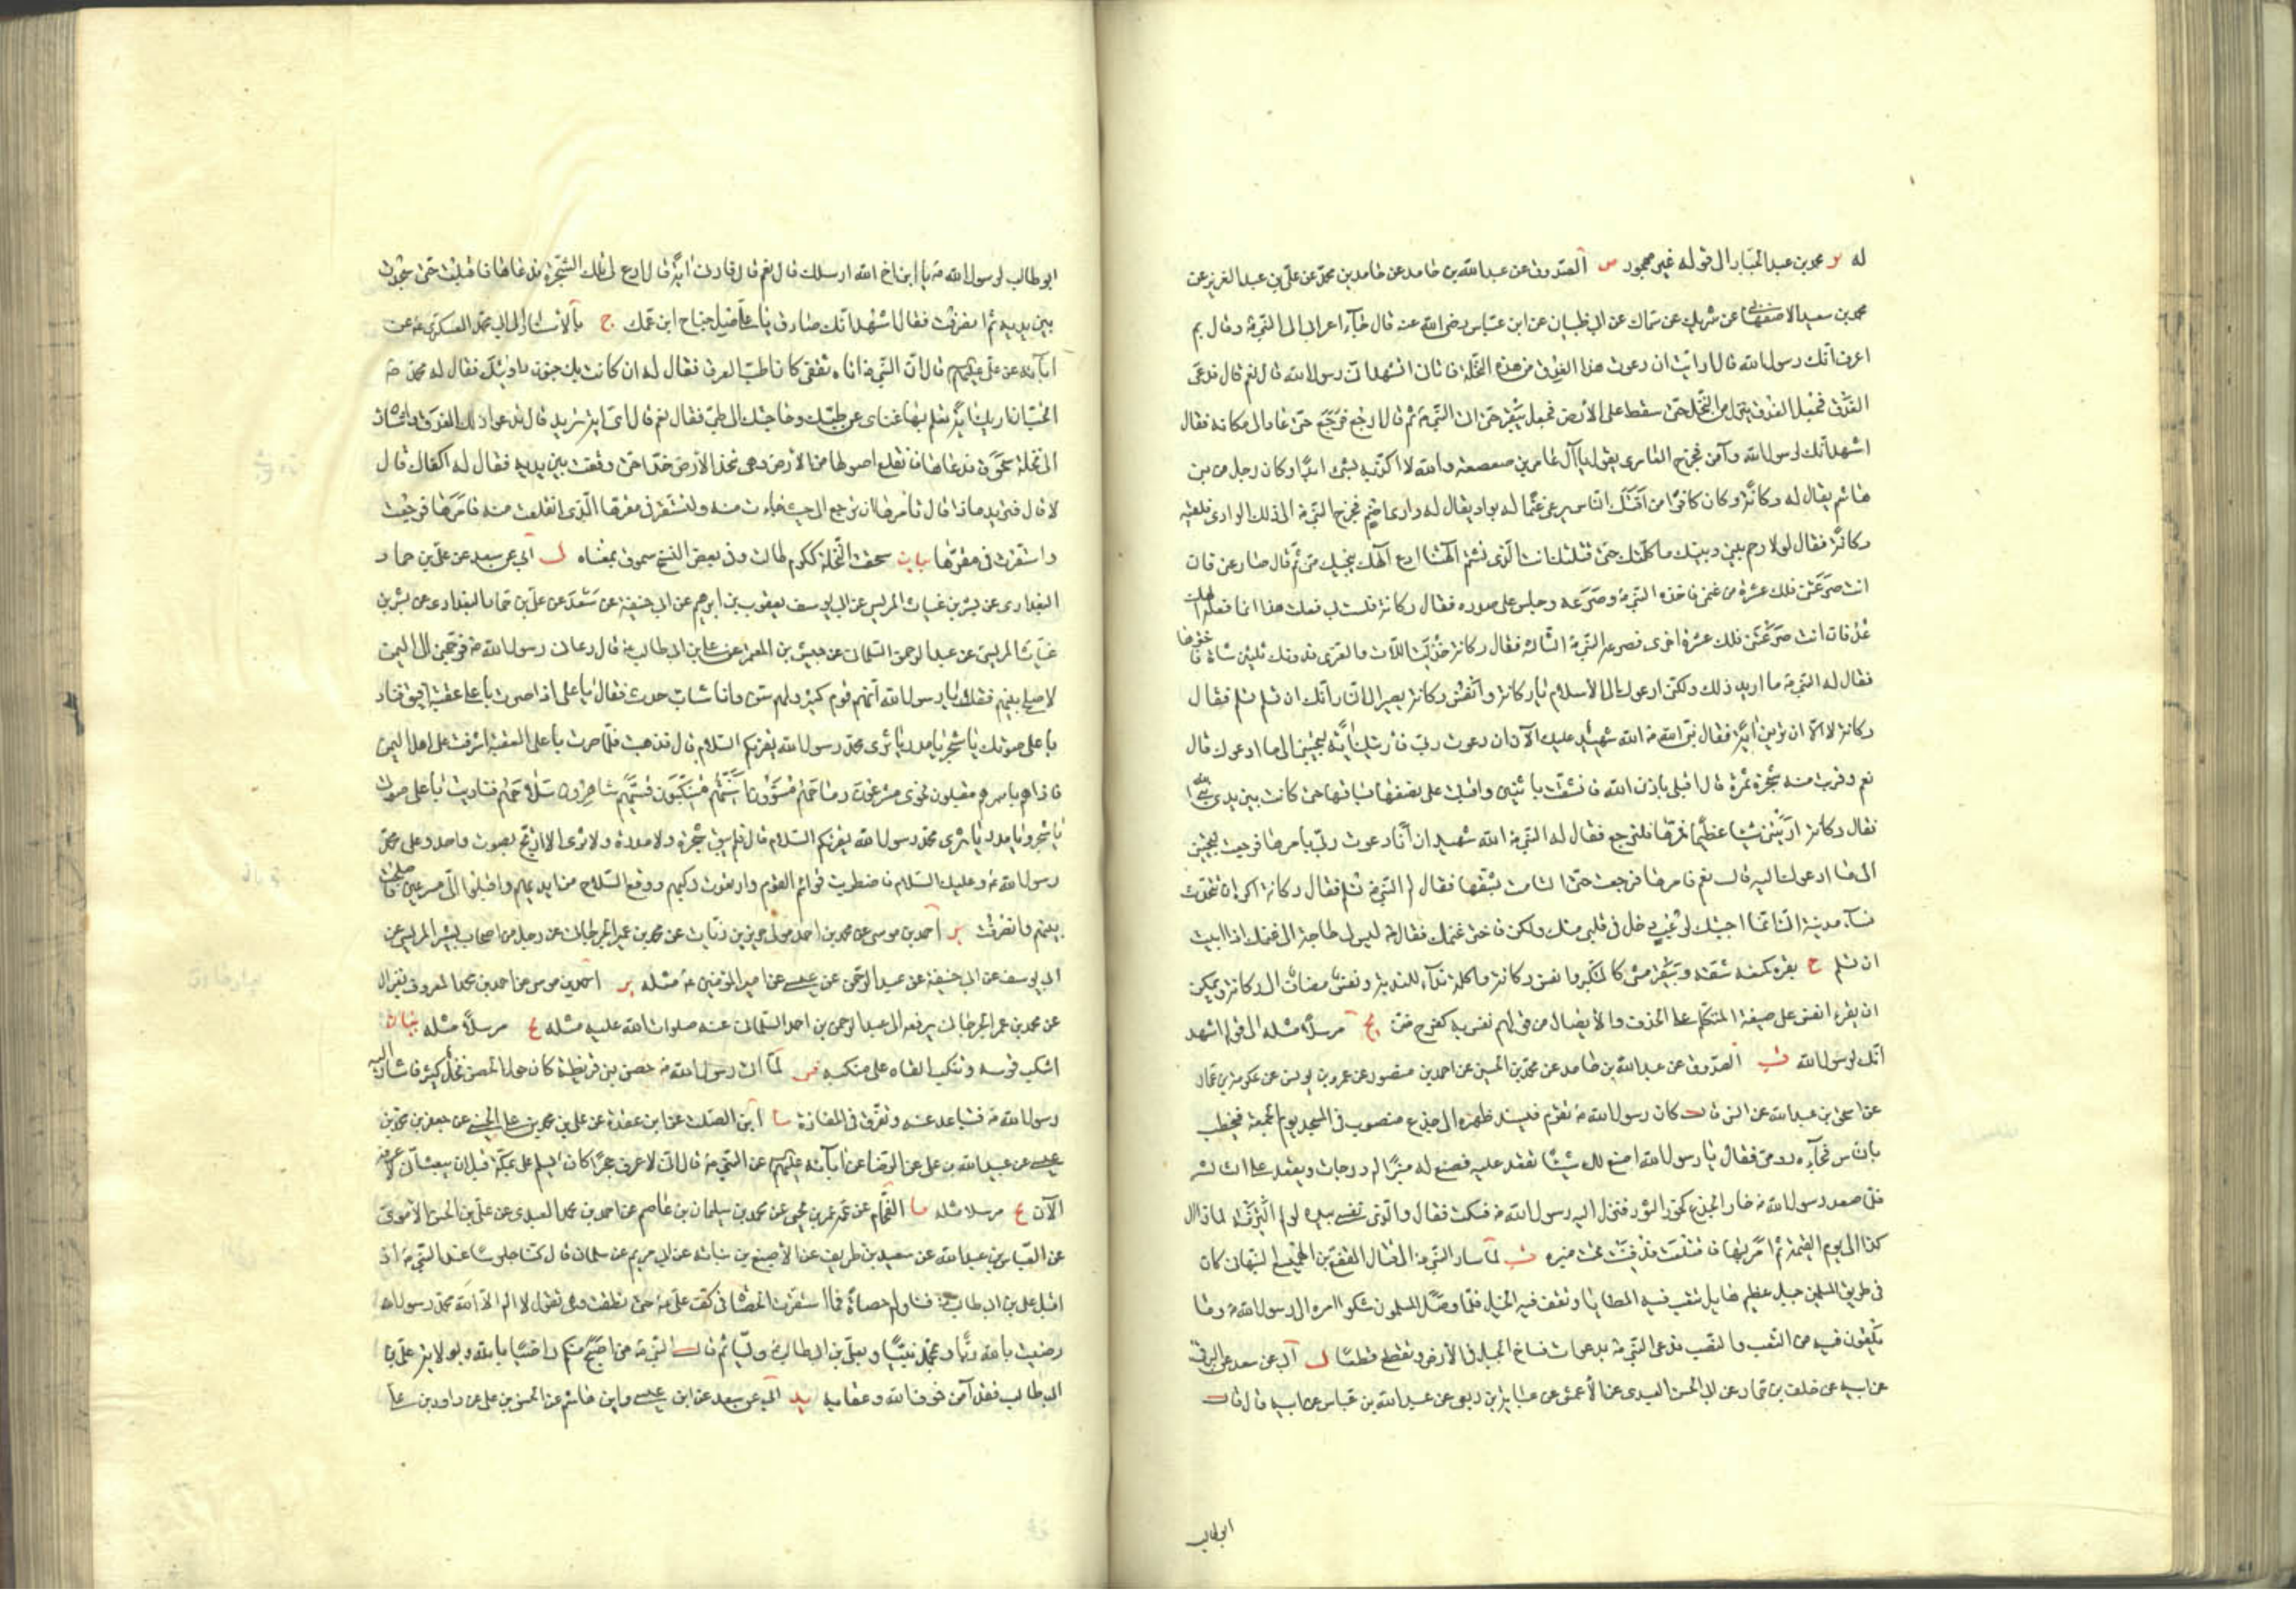 له ير محمد بن عبد الجبار الى قوله غير مجمود ص الصدوق عن عبد الله بن حامد عن حامد بن محمد عن علي بن عبد العزيز عن
محمد بن سعيد الاصفهاني عن شريك عن سماك عن ابي ظبيان عن ابن عباس رضي الله عنه قال جاء اعرابي الى النبي ص وقال بم
اعرف انك رسول الله قال ارايت ان دعوت هذا العذق من هذه النخلة فاتاني اتشهد اني رسول الله قال نعم قال فدعى
العذق فجعل العذق ينزل من النخل حتى سقط على الأرض فجعل يبقز حتى اتى النبي ص ثم قال ارجع فرجع حتى عاد الى مكانه فقال
اشهد انك لرسول الله وآمن فخرج العامري يقول يا آل عامر بن صعصعة والله لا اكذبه بشي ابدا وكان رجل من بني
هاشم يقال له ركانة وكان كافرا من افتك الناس يرعى غنما له بواد يقال له وادي اضم فخرج النبي ص الى ذلك الوادي فلقيه
ركانة فقال لولا رحم بيني وبينك ما كلمتك حتى قتلتك انت الذي تشتم آلهتنا ادع الهك ينجيك مني ثم قال صارعني فان
انت صرعتني فلك عشرة من غنمي فاخذه النبي ص وصرعه وجلس على صدره فقال ركانة فلست بي فعلت هذا انما فعله الهك
عد فان انت صرعتني فلك عشرة اخرى فصرعه النبي ص الثانية فقال ركانة خذلت اللات والعزى فدونك ثلثين شاة فاخترها
فقال له النبي ص ما اريد ذلك ولكني ادعوك الى الأسلام يا ركانة وانفس ركانة يصير الى النار انك ان تسلم تسلم فقال
ركانة لا الا ان تريني اية فقال نبي الله ص الله شهيد عليك الآن ان دعوت ربي فاريتك اية لتجيبني الى ما ادعوك قال
نعم وقرب منه شجرة ثمرة قال اقبلي باذن الله فانشقت باثنين واقبلت على نصفها بساقها حتى كانت بين يدي نبي الله
فقال ركانة اريتني شيئا عظيما فمرها فلترجع فقال له النبي ص الله شهيد ان انا دعوت ربي يامرها فرجعت لتجيبني
الى ما ادعوك اليه قال نعم فامرها فرجعت حتى التامت بشقها فقال له النبي ص تسلم فقال ركانة اكره ان تتحدث
نساء مدينة اني انما اجبتك لرعب دخل في قلبي منك ولكن فاختر غنمك فقال ص ليس لي حاجة الى غنمك اذا ابيت
ان تسلم ح بقره كمنعه شقه ويبقز مشى كالمتكبر وانفس ركانة واكلة نداء للندبة ونفس مضاف الى ركانة ويمكن
ان يقرء انفس على صيغة المتكلم على الحذف والأيصال من قولهم نفس به كفرح ضن يج مرسلا مثله الى قوله اشهد
انك لرسول الله ص الصدوق عن عبد الله بن حامد عن محمد بن الحسين عن احمد بن منصور عن عمر بن يونس عن عكرمة بن عمار
عن اسحق بن عبد الله عن انس قال كان رسول الله ص يقوم فيسند ظهره الى جذع منصوب في المسجد يوم الجمعة فيخطب
بالناس فجاءه رومي فقال يا رسول الله اصنع لك شيئا تقعد عليه فصنع له منبرا له درجتان ويقعد على الثالثة
فلما صعد رسول الله ص خار الجذع كخوار الثور فنزل اليه رسول الله ص فسكت فقال والذي نفسي بيده لو لم التزمه لما زال
كذا الى يوم القيمة ثم امر بها فاقتلعت فدفنت تحت منبره ص لما سار النبي ص الى قتال المقفع بن الهميسع النبهاني كان
في طريق المسلمين جبل عظيم هايل تتعب فيه المطايا وتقف فيه الخيل فلما وصل المسلمون شكوا امره الى رسول الله ص وما
يلقون فيه من التعب والنصب فدعى النبي ص بدعوات فساخ الجبل في الأرض وتقطع قطعا ل ابي عن سعد عن البرقي
عن ابيه عن خلف بن حماد عن ابي الحسن العبدي عن الأعمش عن عباية بن ربعي عن عبد الله بن عباس عن ابيه قال قال
ابو طالب
ابو طالب لرسول الله ص يا ابن اخ الله ارسلك قال نعم قال فارني اية قال ادع لي تلك الشجرة فدعاها فاقبلت حتى سجدت
بين يديه ثم انصرفت فقال اشهد انك صادق يا علي صل جناح ابن عمك ج بالأسناد الى ابي محمد العسكري ع عن
آبائه عن علي عليهم السلام قال ان النبي ص اتاه ثقفي كان اطب العرب فقال له ان كان بك جنون داويتك فقال له محمد ص
اتحب ان اريك اية تعلم بها غناي عن طبك وحاجتك الى طبي فقال نعم قال اي اية تريد قال تدعو ذلك العذق واشار
الى نخلة سحوق فدعاها فانقلع اصولها من الأرض وهي تخد الأرض خدا حتى وقفت بين يديه فقال له اكفاك قال
لا قال فتريد ماذا قال تامرها ان ترجع الى حيث جاءت منه ولتستقر في مقرها الذي انقلعت منه فامرها فرجعت
واستقرت في مقرها بيان سحقت النخلة ككرم طالت وفي بعض النسخ سموق بمعناه ل ابي عن سعد عن علي بن حماد
البغدادي عن بشر بن غياث المريسي عن ابي يوسف يعقوب بن ابرهيم عن ابي حنيفة عن سعد عن علي بن حماد البغدادي عن بشر بن
غياث المريسي عن عبد الرحمن السلماني عن حبيش بن المعمر عن علي بن ابي طالب ع قال دعاني رسول الله ص فوجهني الى اليمن
لاصلح بينهم فقلت يا رسول الله انهم قوم كثير ولهم سن وانا شاب حدث فقال يا علي اذا صرت باعلى عقبة افيق فناد
باعلى صوتك يا شجر يا مدر يا ثرى محمد رسول الله يقرئكم السلام قال فذهبت فلما صرت باعلى العقبة اشرفت على اهل اليمن
فاذا هم باسرهم مقبلون نحوي مشرعون رماحهم مسوون اسنتهم متنكبون قسيهم شاهرون سلاحهم فناديت باعلى صوتي
يا شجر ويا مدر يا ثرى محمد رسول الله يقرئكم السلام قال فلم يبق شجرة ولا مدرة ولا ثرى الا ارتج بصوت واحد وعلى محمد
رسول الله ص وعليك السلام فاضطربت قوائم القوم وارتعدت ركبهم ووقع السلاح من ايديهم واقبلوا الي مسرعين فاصلحت
بينهم وانصرفت ير احمد بن موسى عن محمد بن احمد مولى حرب بن زيات عن محمد بن عمير الجرجاني عن رجل من اصحاب بشر المريسي عن
ابي يوسف عن ابي حنيفة عن عبد الرحمن عن عيسى عن امير المؤمنين ع مثله ير احمد بن موسى عن احمد بن محمد المعروف بغزال
عن محمد بن عمر الجرجاني يرفعه الى عبد الرحمن بن احمد السلماني عنه صلوات الله عليه مثله يج مرسلا مثله بيان
انتكب قوسه وتنكب القاه على منكبه ص لما اتى رسول الله ص حصن بن قريظة كان حول الحصن نخل كثير فاشار اليه
رسول الله ص فتباعد عنه وتفرق في المفازة ما ابن الصلت عن ابن عقدة عن علي بن محمد بن علي الحسني عن جعفر بن محمد بن
عيسى عن عبيد الله بن علي عن الرضا عن آبائه عليهم السلام عن النبي ص قال اني لاعرف حجرا كان يسلم علي بمكة قبل ان ابعث اني لاعرفه
الآن يج مرسلا مثله ما الفحام عن عمه عمر بن يحيى عن محمد بن سليمان بن عاصم عن احمد بن محمد العبدي عن علي بن الحسن الأموي
عن العباس بن عبد الله عن سعيد بن طريف عن الأصبغ بن نباتة عن ابي مريم عن سلمان قال كنا جلوسا عند النبي ص اذ
اقبل علي بن ابي طالب ع فناوله حصاة فما استقرت الحصاة في كف علي ع حتى نطقت وهي تقول لا اله الا الله محمد رسول الله
رضيت بالله ربا وبمحمد نبيا وبعلي بن ابي طالب وليا ثم قال النبي ص من اصبح منكم راضيا بالله وبولاية علي بن
ابي طالب فقد آمن خوف الله وعقابه يد ابي عن سعد عن ابن عيسى وابن هاشم عن الحسن بن علي عن داود بن علي